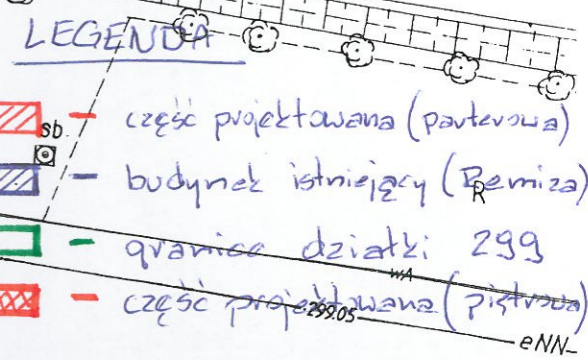 LEGENDA
sb.
- część projektowana (parterowa)
- budynek istniejący (Remiza)
R
- granica działki 299
wA
- część projektowana (piętrowa)
299.05
eNN